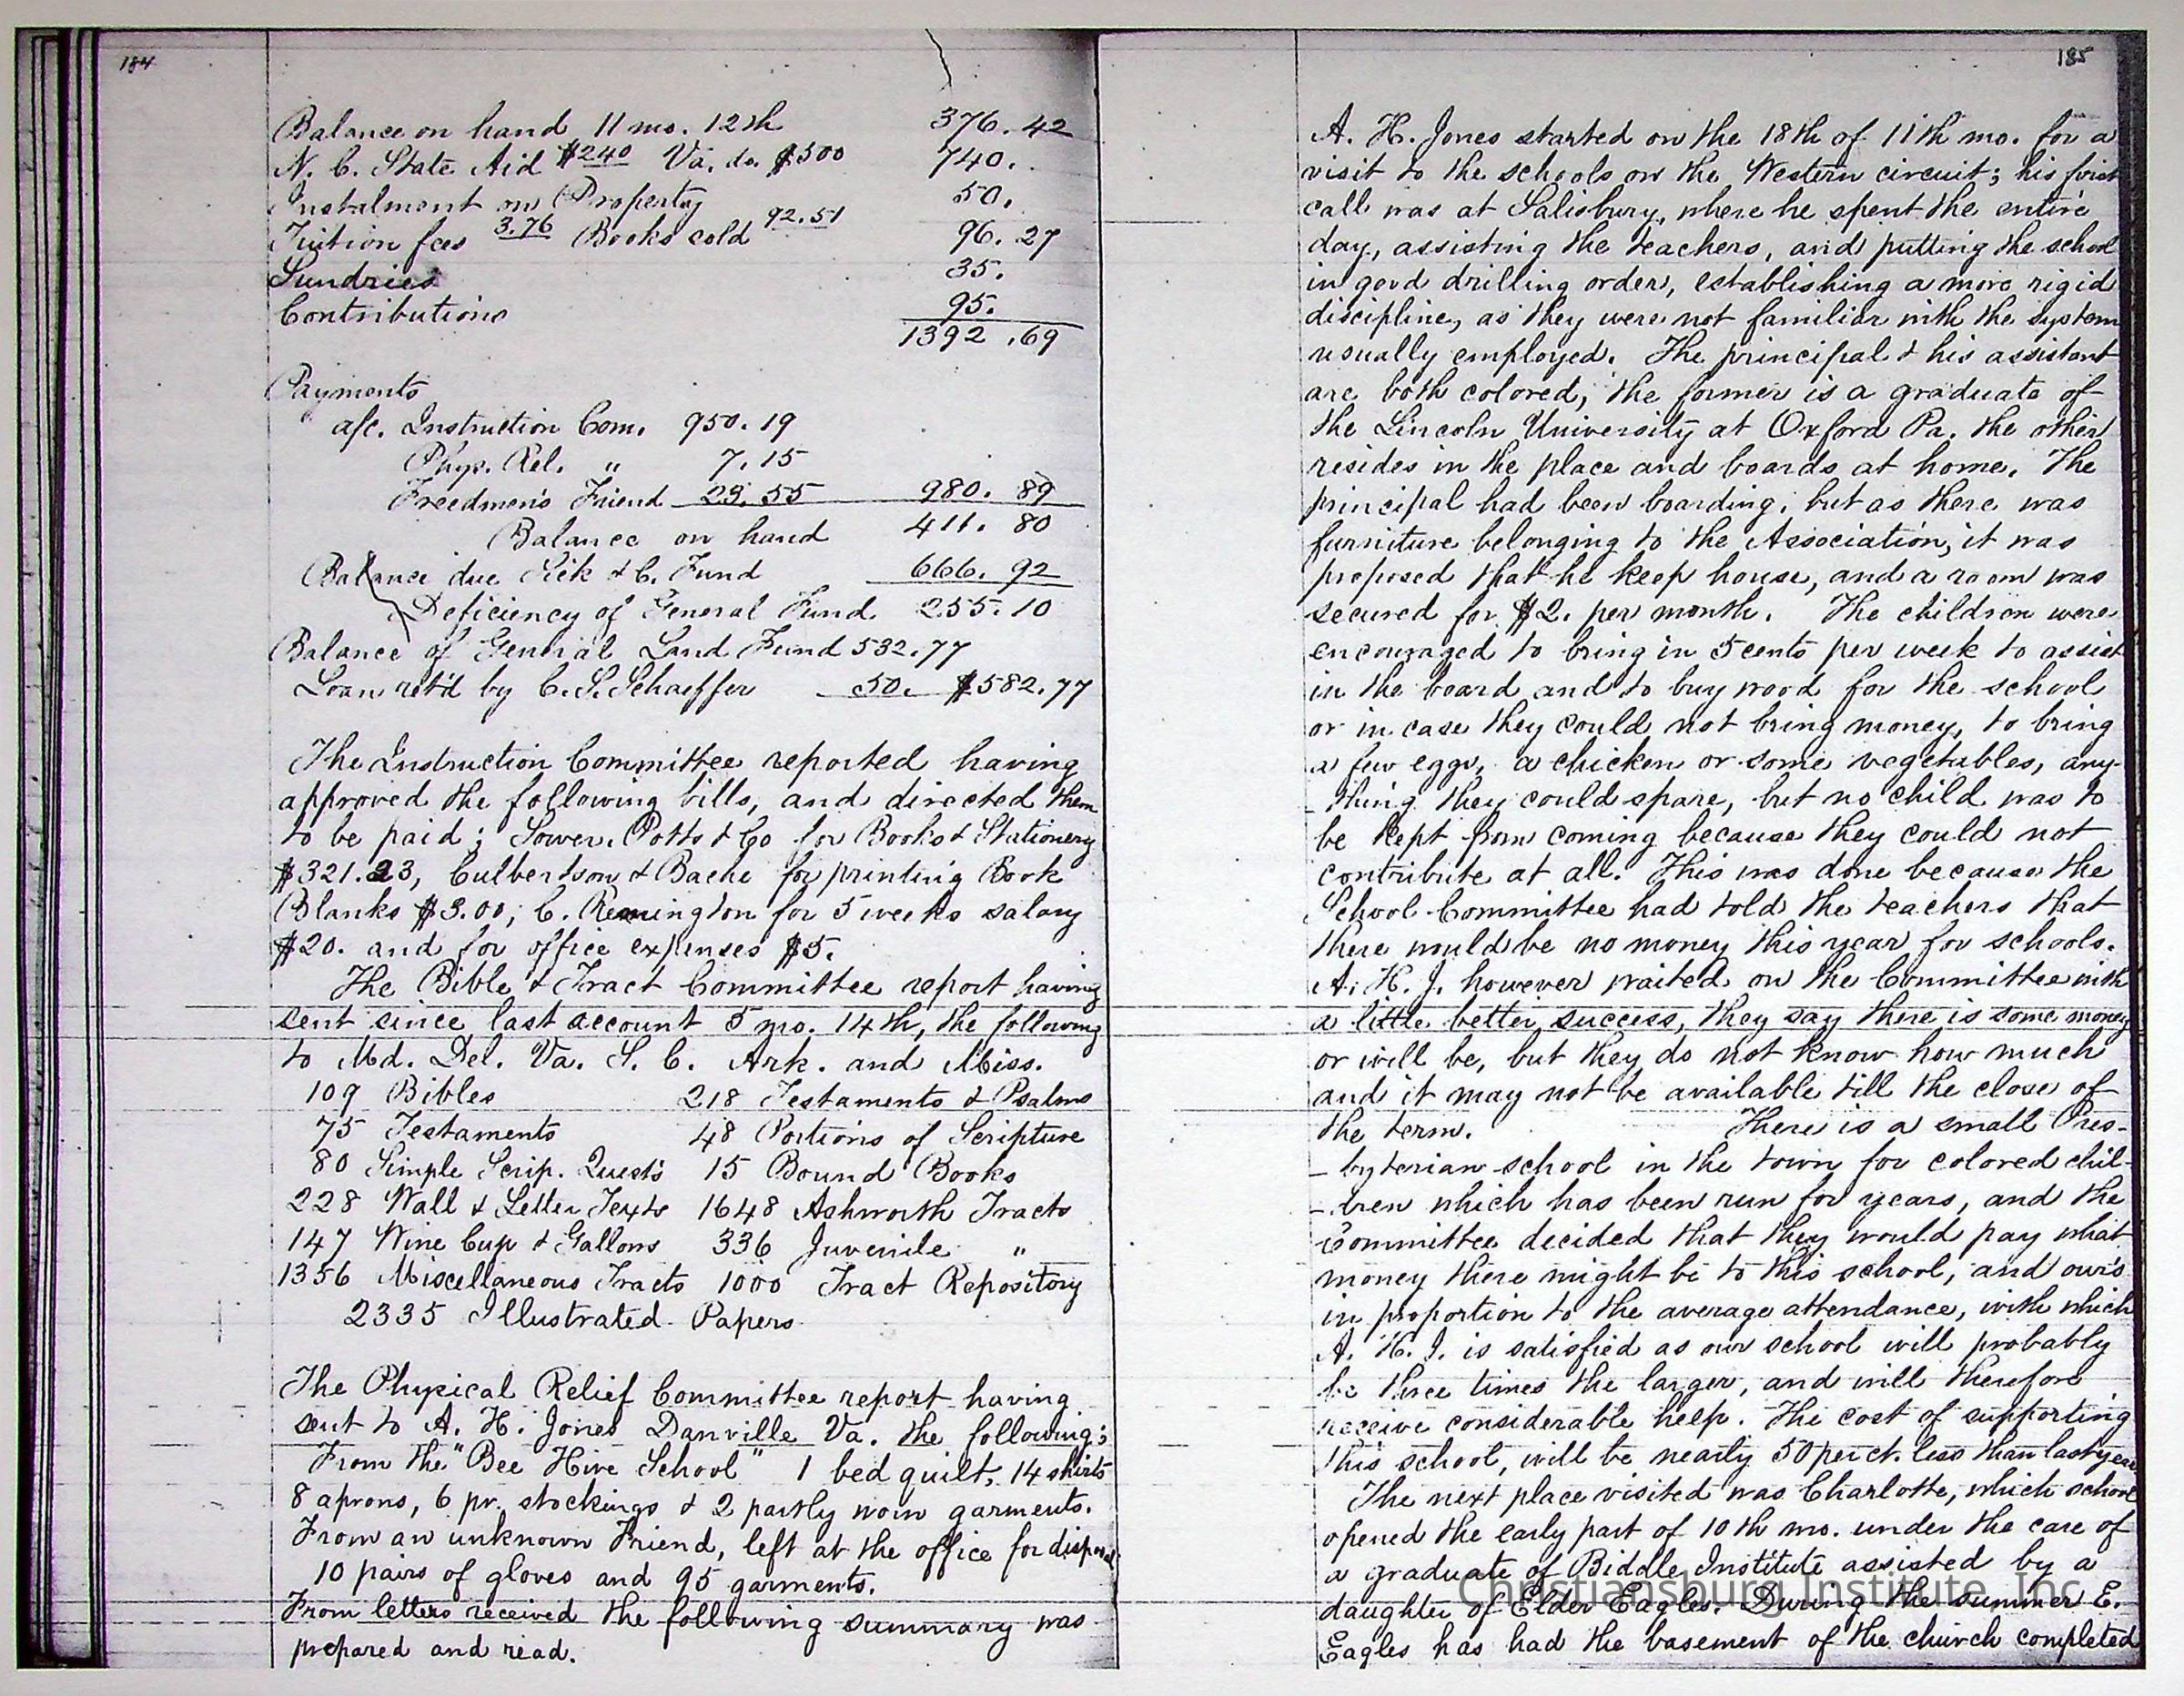 184
Balance on hand 11 mo. 12th 376.42
N. C. State Aid $240 Va. do. $500 740.
Instalment on Property 50.
Tuition fees 3.76 Books sold 92.51 96.27
Sundries 35.
Contributions 95.
1392.69
Payments
a/c. Instruction Com. 950.19
Phys. Rel. " 7.15
Freedmen's Friend 23.55 980.89
Balance on hand 411.80
Balance due Sick & C. Fund 666.92
Deficiency of General Fund 255.10
Balance of General Land Fund 532.77
Loan ret'd by C. S. Schaeffer 50. $582.77
The Instruction Committee reported having
approved the following bills, and directed them
to be paid; Sower, Potts & Co for Books & Stationery
$321.23, Culbertson & Bache for printing Book
Blanks $3.00; C. Remington for 5 weeks salary
$20. and for office expenses $5.
The Bible & Tract Committee report having
sent since last account 5 mo. 14th, the following
to Md. Del. Va. S. C. Ark. and Miss.
109 Bibles 218 Testaments & Psalms
75 Testaments 48 Portions of Scripture
80 Simple Scrip. Quest's 15 Bound Books
228 Wall & Letter Texts 1648 Ashworth Tracts
147 Wine Cup & Gallons 336 Juvenile "
1356 Miscellaneous Tracts 1000 Tract Repository
2335 Illustrated Papers
The Physical Relief Committee report having
sent to A. H. Jones Danville Va. the following;
From the "Bee Hive School" 1 bed quilt, 14 shirts
8 aprons, 6 pr. stockings & 2 partly worn garments.
From an unknown Friend, left at the office for disposal
10 pairs of gloves and 95 garments.
From letters received the following summary was
prepared and read.
185
A. H. Jones started on the 18th of 11th mo. for a
visit to the schools on the Western circuit; his first
call was at Salisbury, where he spent the entire
day, assisting the teachers, and putting the school
in good drilling order, establishing a more rigid
discipline, as they were not familiar with the system
usually employed. The principal & his assistant
are both colored, the former is a graduate of
the Lincoln University at Oxford Pa. the other
resides in the place and boards at home. The
principal had been boarding, but as there was
furniture belonging to the Association, it was
proposed that he keep house, and a room was
secured for $2. per month. The children were
encouraged to bring in 5 cents per week to assist
in the board and to buy wood for the school
or in case they could not bring money, to bring
a few eggs, a chicken or some vegetables, any-
-thing they could spare, but no child was to
be kept from coming because they could not
contribute at all. This was done because the
School Committee had told the teachers that
there would be no money this year for schools.
A. H. J. however waited on the Committee with
a little better success, they say there is some money
or will be, but they do not know how much
and it may not be available till the close of
the term. There is a small Pres-
-byterian school in the town for colored chil-
-dren which has been run for years, and the
committee decided that they would pay what
money there might be to this school, and ours
in proportion to the average attendance, with which
A. H. J. is satisfied as our school will probably
be three times the larger, and will therefore
receive considerable help. The cost of supporting
this school, will be nearly 50 per ct. less than last year
The next place visited was Charlotte, which school
opened the early part of 10th mo. under the care of
a graduate of Biddle Institute assisted by a
daughter of Elder Eagles. During the summer E.
Eagles has had the basement of the church completed
Christiansburg Institute, Inc